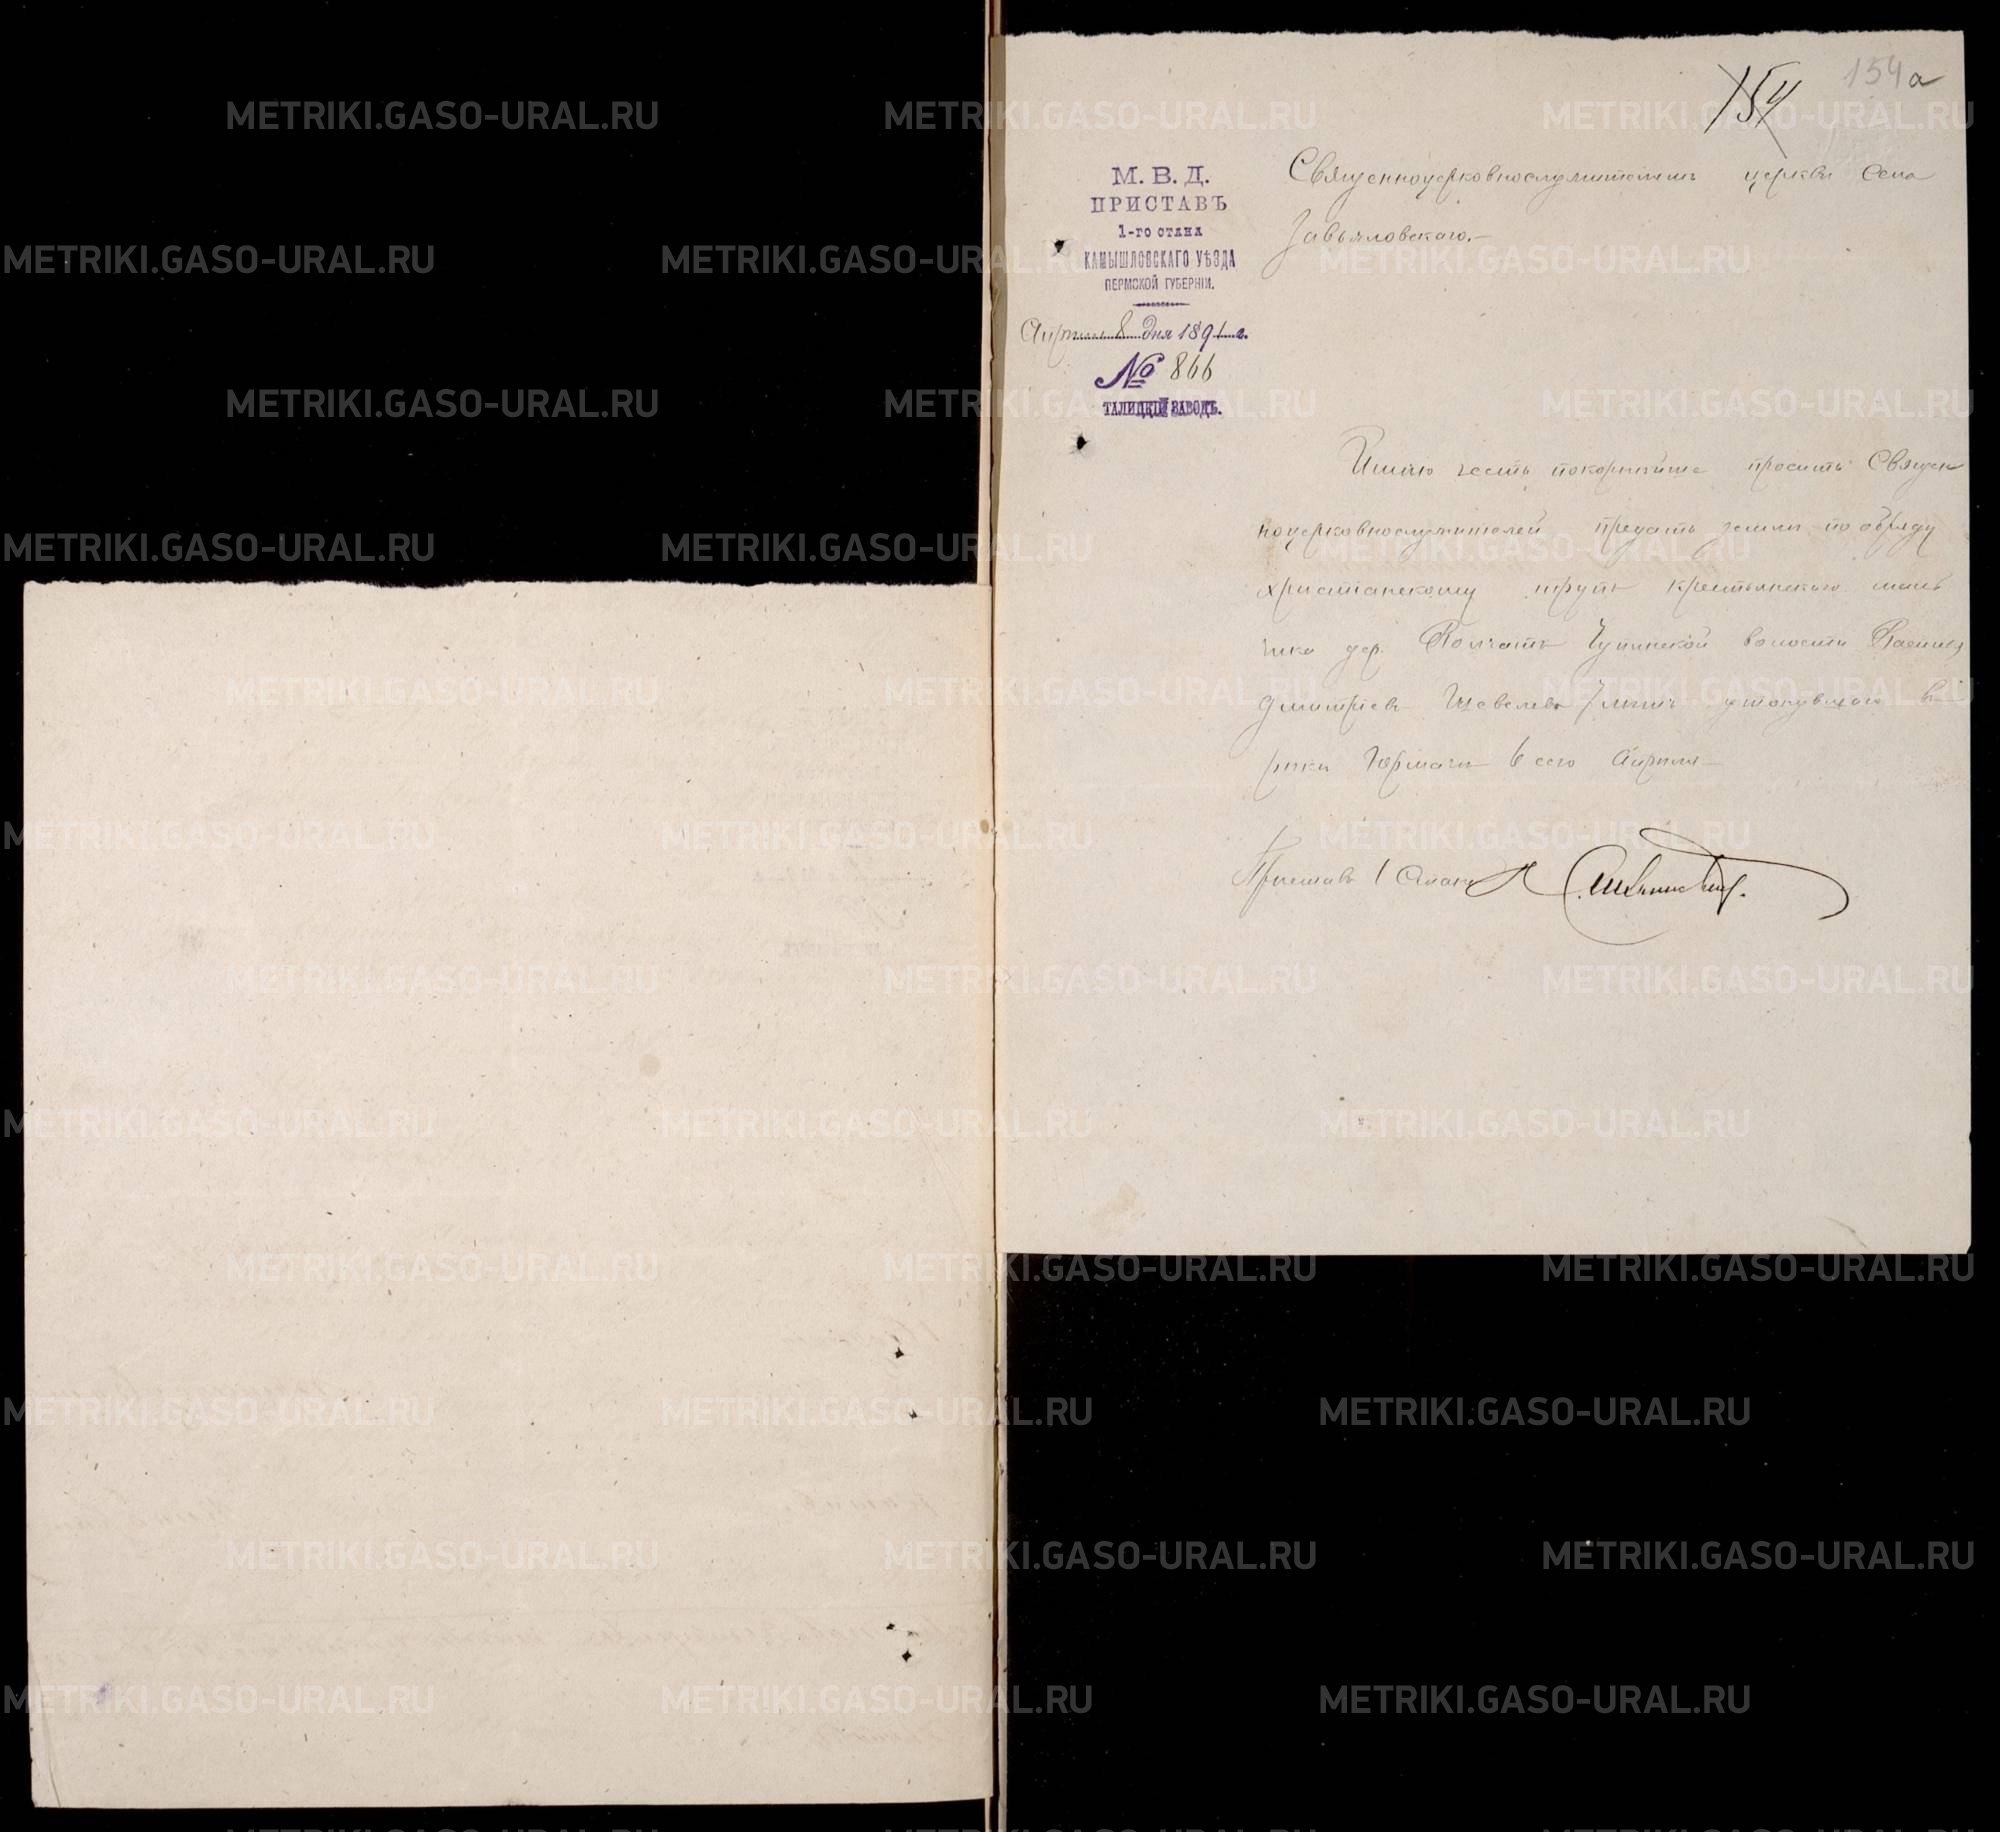 154
154а
М. В. Д.
ПРИСТАВЪ
1-го стана
КАМЫШЛОВСКАГО УѢЗДА
ПЕРМСКОЙ ГУБЕРНІИ.
Апрѣля 8 дня 1891 г.
№ 866
ТАЛИЦКІЙ ЗАВОДЪ.
Священноцерковнослужителямъ церкви села
Завьяловскаго.
Имѣю честь покорнѣйше просить Священ
ноцерковнослужителей предать землѣ по обряду
христіанскому трупъ крестьянскаго маль
чика дер. Чупинской волости Василія
Дмитріева Шевелева 7 лѣтъ утонувшаго въ
рѣки Юрмачъ 6 сего Апрѣля
Приставъ 1 Стана
METRIKI.GASO-URAL.RU